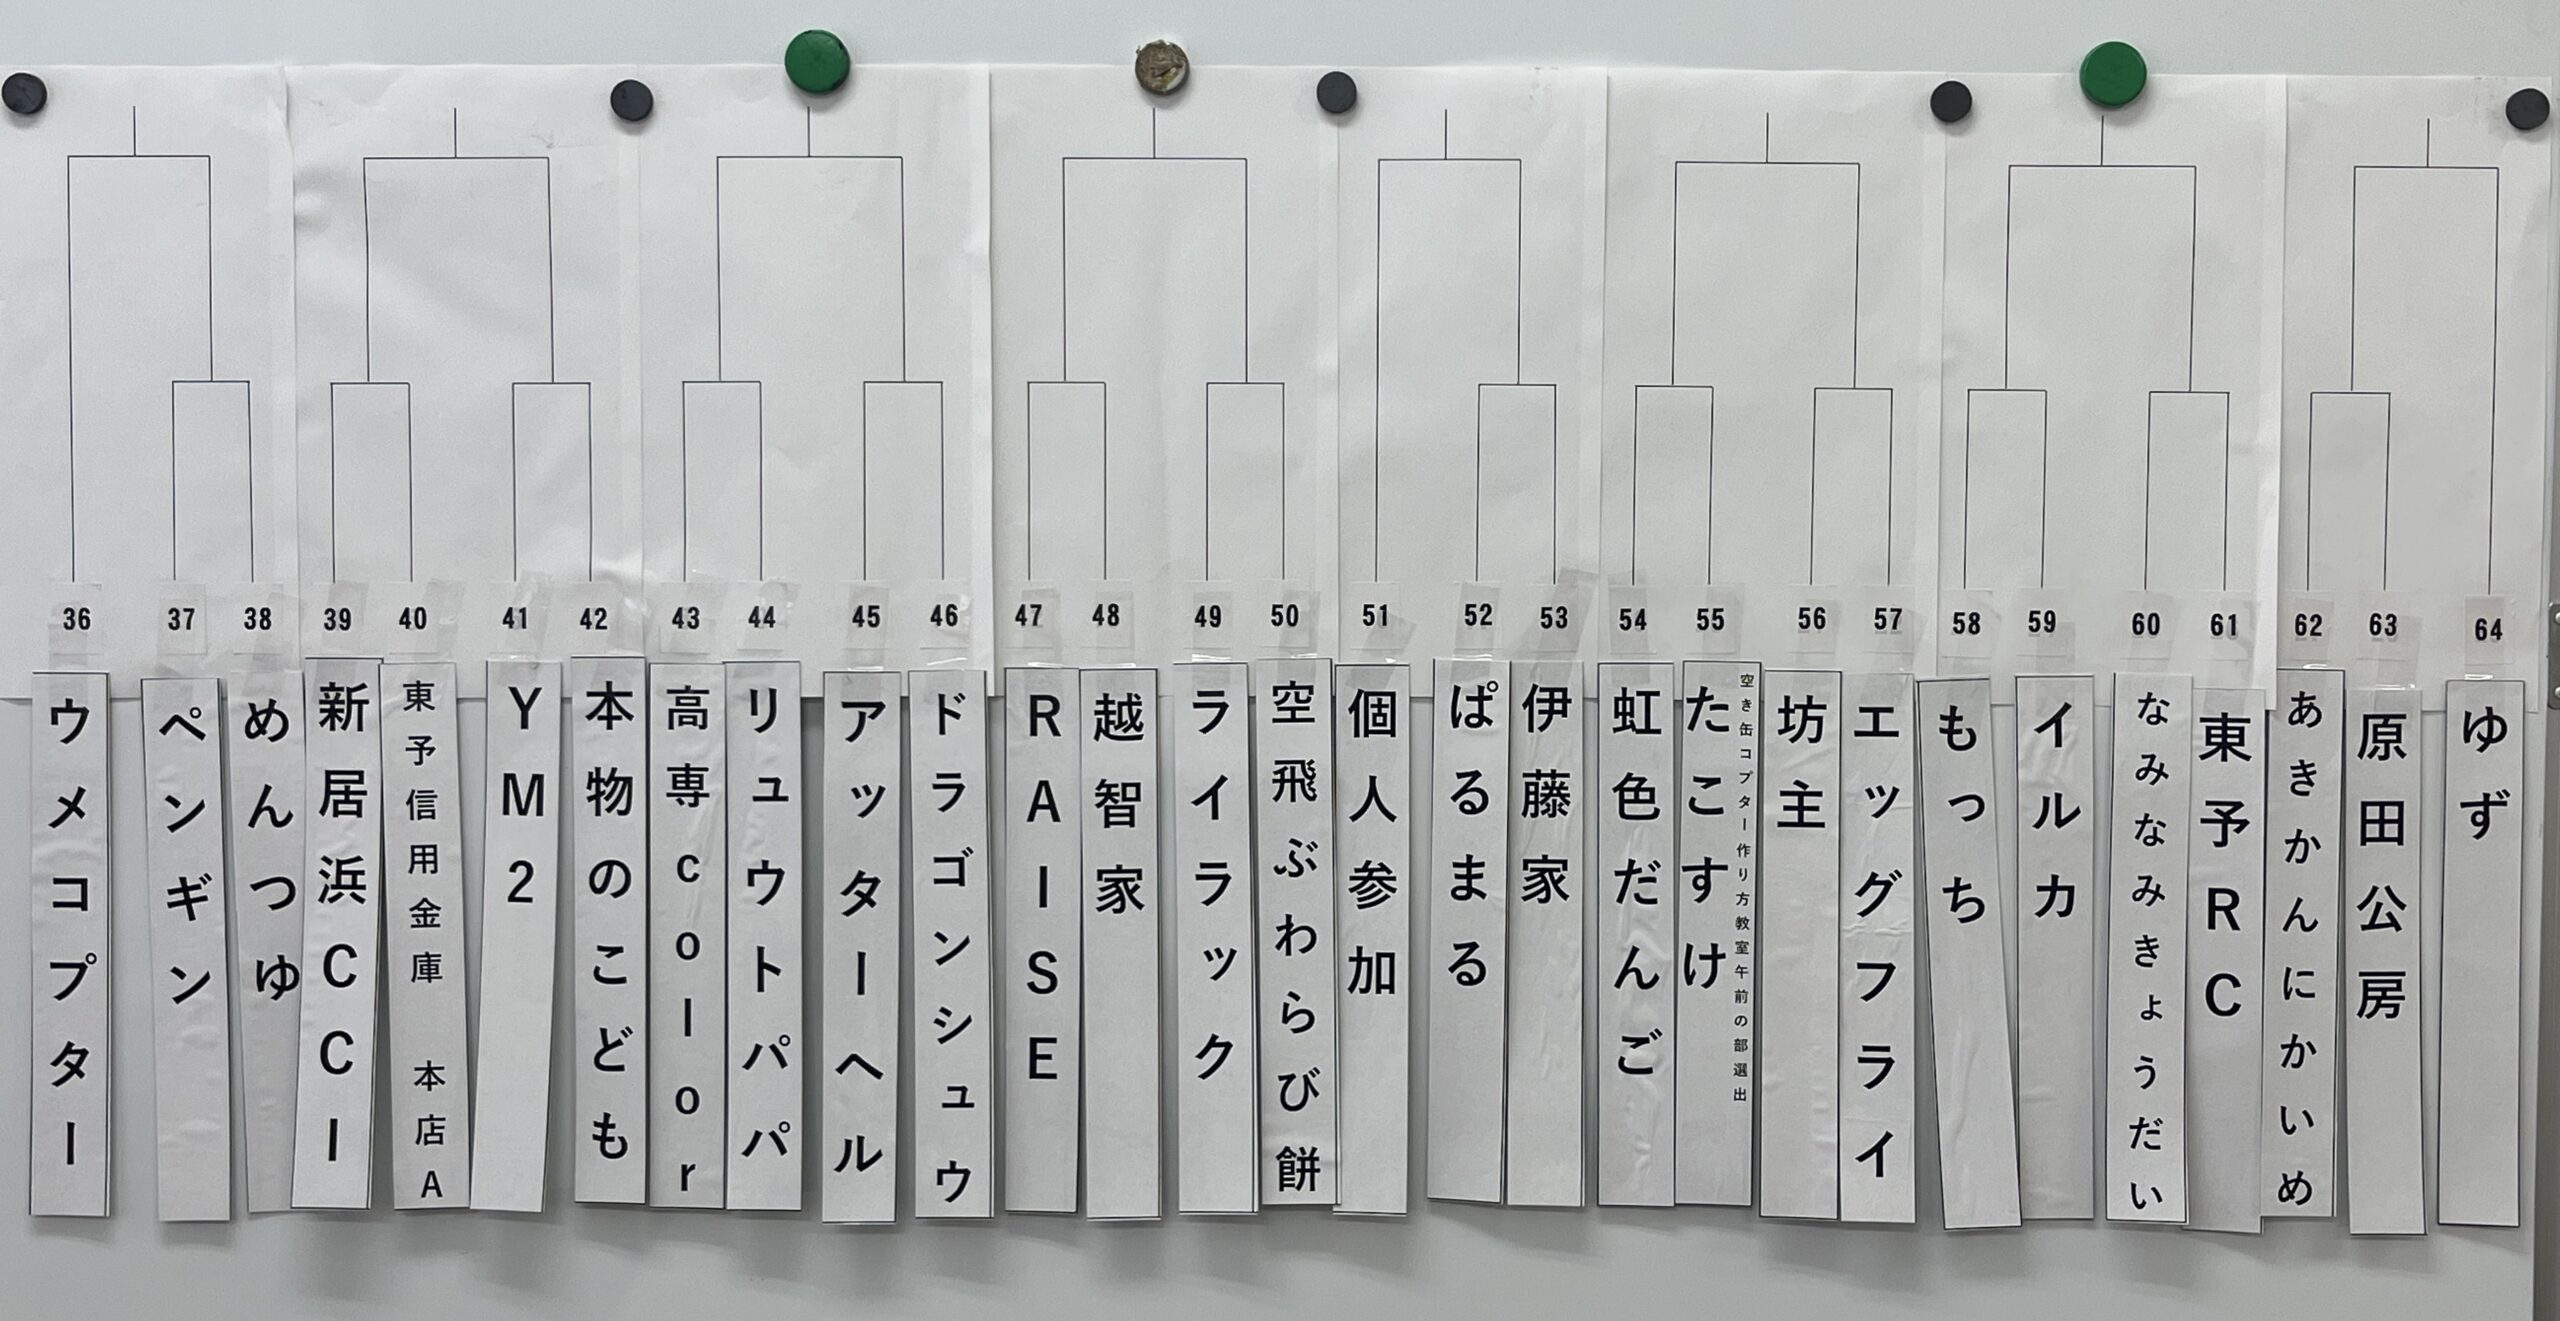 36 37 38 39 40 41 42 43 44 45 46 47 48 49 50 51 52 53 54 55 56 57 58 59 60 61 62 63 64
ウメコプター
ペンギン
めんつゆ
新居浜CCI
東予信用金庫 本店A
YM2
本物のこども
高専color
リュウトパパ
アッターヘル
ドラゴンシュウ
RAISE
越智家
ライラック
空飛ぶわらび餅
個人参加
ぱるまる
伊藤家
虹色だんご
空き缶コプター作り方教室午前の部選出
たこすけ
坊主
エッグフライ
もっち
イルカ
なみなみきょうだい
東予RC
あきかんにかいめ
原田公房
ゆず